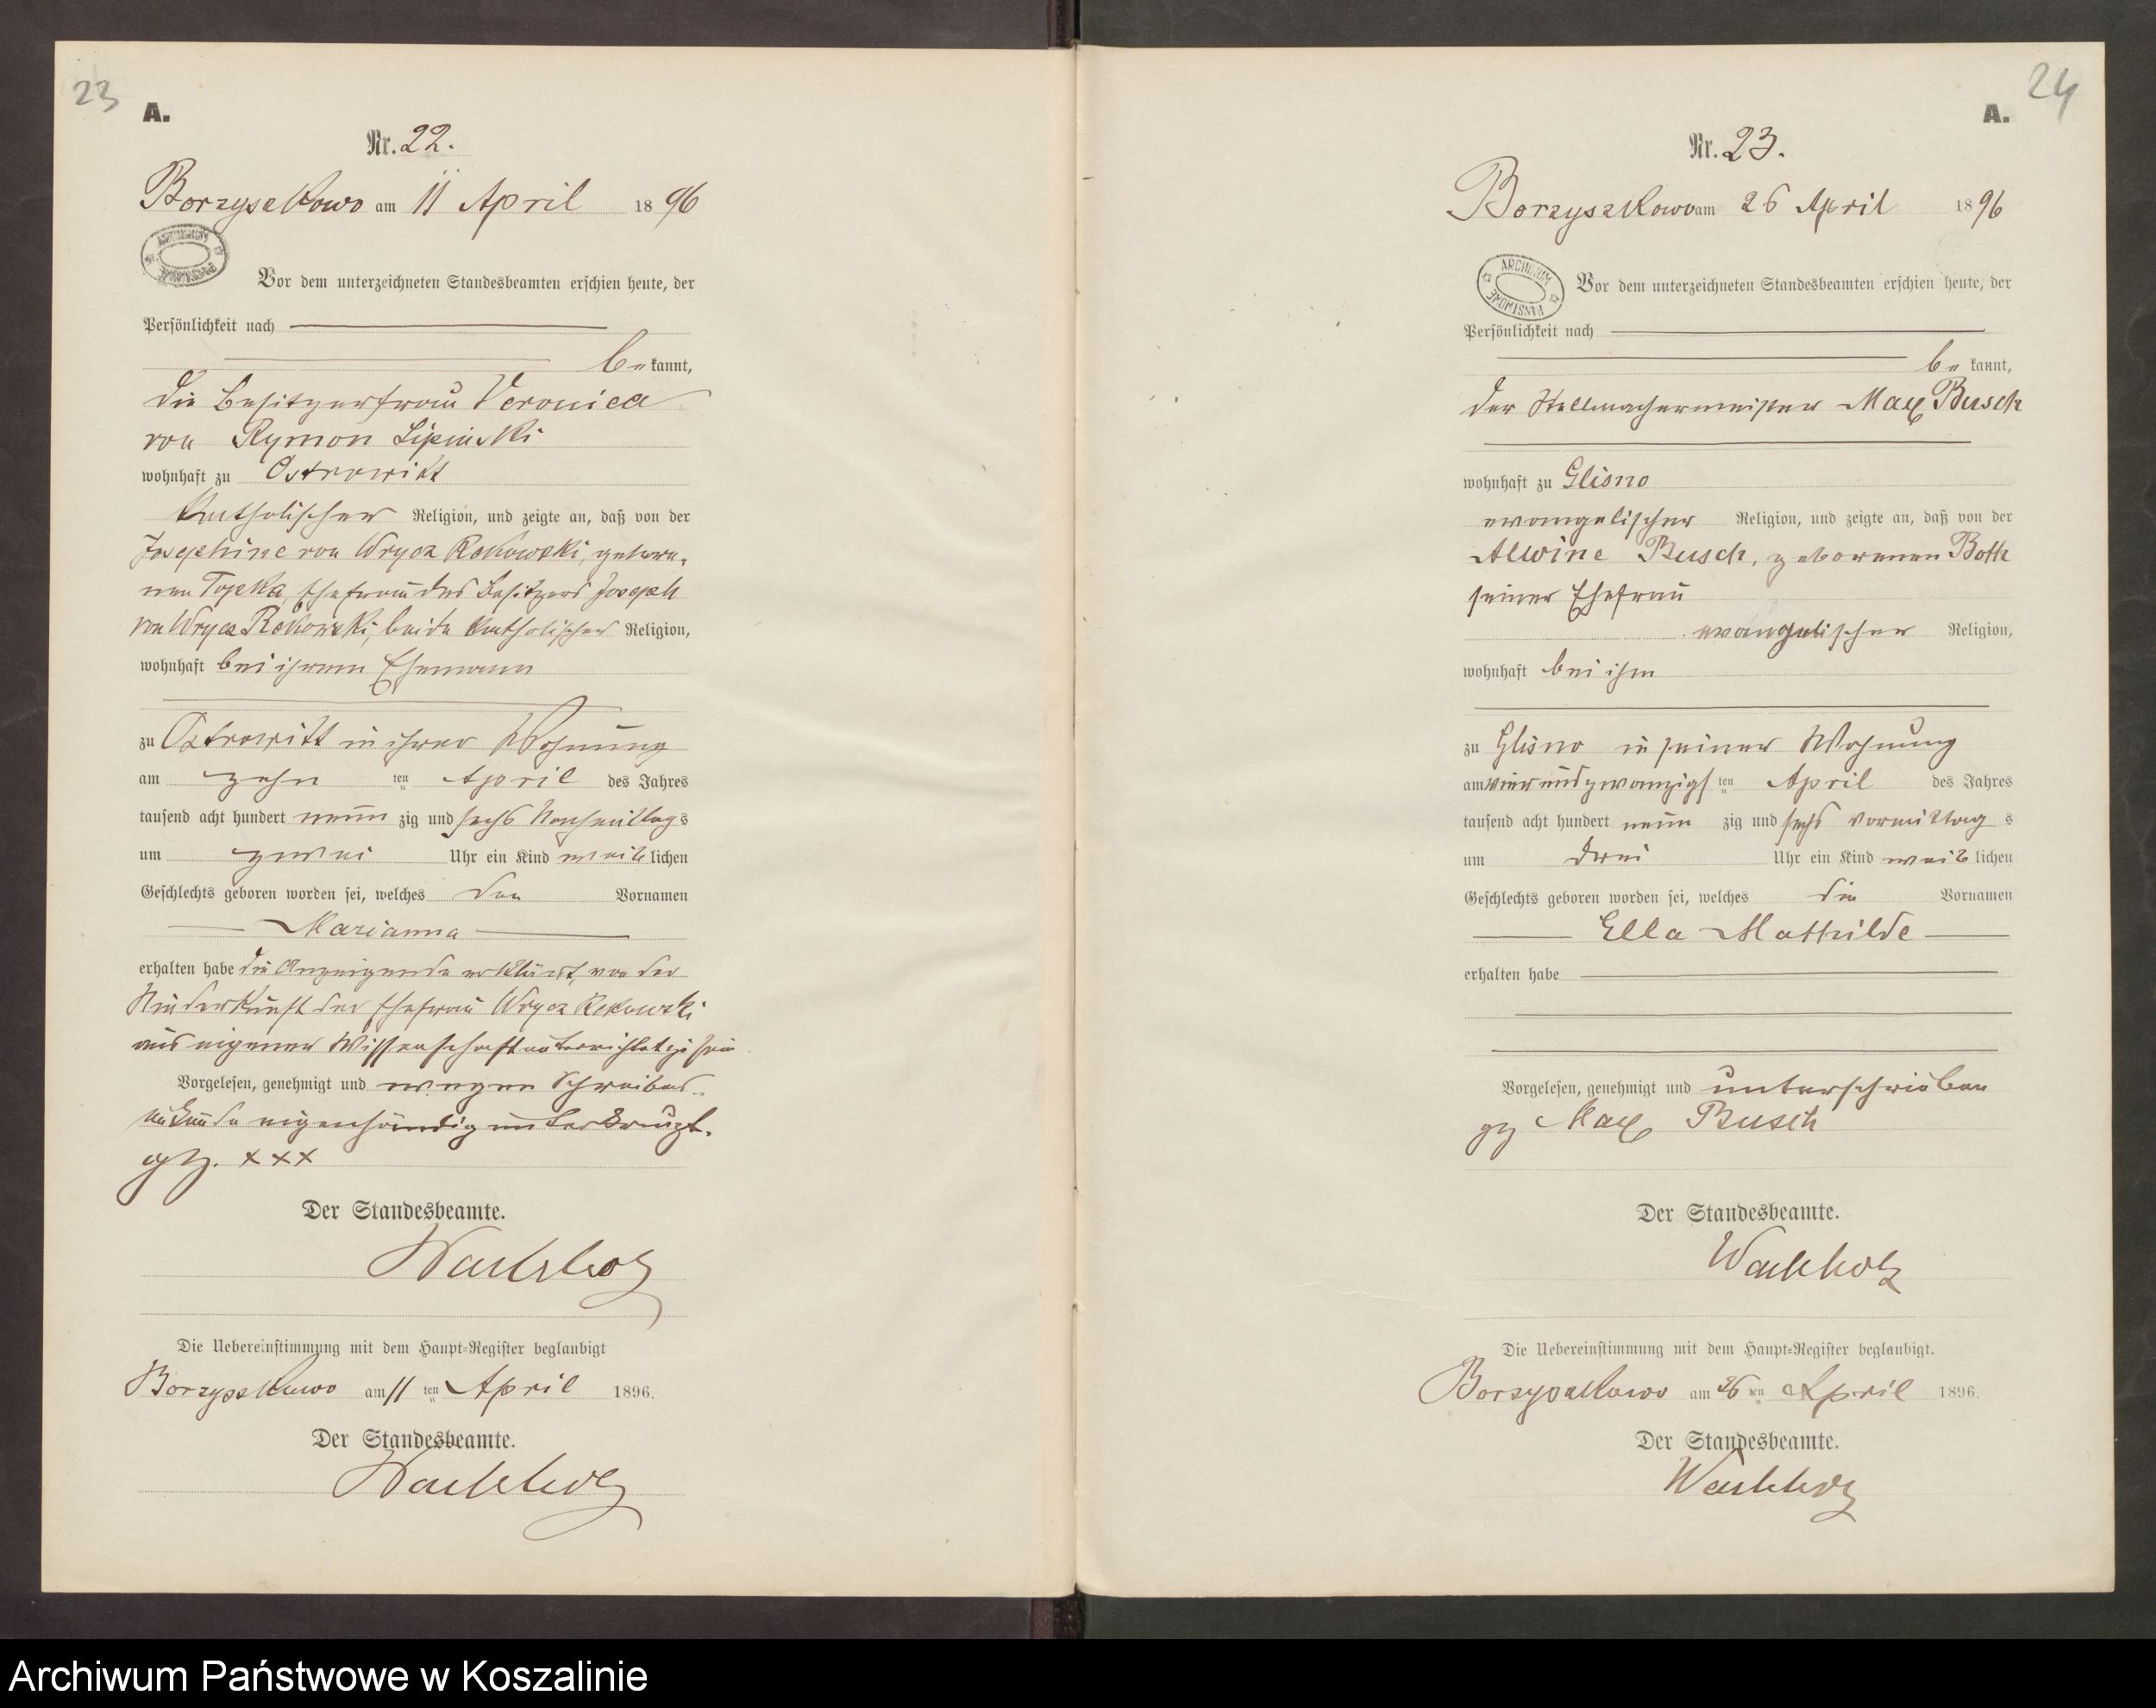 23
A.
Nr. 22.
Borzyszkowo am 11 April 1896
ARCHIWUM PAŃSTWOWE
Vor dem unterzeichneten Standesbeamten erschien heute, der
Persönlichkeit nach
be kannt,
die Besitzerfrau Veronica
von Rymon Lipinski
wohnhaft zu Ostrowitt
katholischer Religion, und zeigte an, daß von der
Josephine von Wrycz Rekowski, gebore-
nen Topka, Ehefrau des Besitzers Joseph
von Wrycz Rekowski, beide katholischer Religion,
wohnhaft bei ihrem Ehemann
zu Ostrowitt in ihrer Wohnung
am zehn ten April des Jahres
tausend acht hundert neun zig und sechs Nachmittags
um zwei Uhr ein Kind weiblichen
Geschlechts geboren worden sei, welches den Vornamen
Marianna
erhalten habe die Anzeigende erklärt, von der
Niederkunft der Ehefrau Wrycz Rekowski
aus eigener Wissenschaft unterrichtet zu sein
Vorgelesen, genehmigt und wegen Schreibens-
unkunde eigenhändig unterkreuzt.
gez. xxx
Der Standesbeamte.
Wachholz
Die Uebereinstimmung mit dem Haupt-Register beglaubigt
Borzyszkowo am 11 ten April 1896.
Der Standesbeamte.
Wachholz
24
A.
Nr. 23.
Borzyszkowo am 26 April 1896
ARCHIWUM PAŃSTWOWE
Vor dem unterzeichneten Standesbeamten erschien heute, der
Persönlichkeit nach
be kannt,
der Stellmachermeister Max Busch
wohnhaft zu Glisno
evangelischer Religion, und zeigte an, daß von der
Alwine Busch, geborenen Both
seiner Ehefrau
evangelischer Religion,
wohnhaft bei ihm
zu Glisno in seiner Wohnung
am vierundzwanzigs ten April des Jahres
tausend acht hundert neun zig und sechs Vormittag s
um drei Uhr ein Kind weiblichen
Geschlechts geboren worden sei, welches die Vornamen
Ella Mathilde
erhalten habe
Vorgelesen, genehmigt und unterschrieben
gz Max Busch
Der Standesbeamte.
Wachholz
Die Uebereinstimmung mit dem Haupt-Register beglaubigt.
Borzyszkowo am 26 ten April 1896.
Der Standesbeamte.
Wachholz
Archiwum Państwowe w Koszalinie